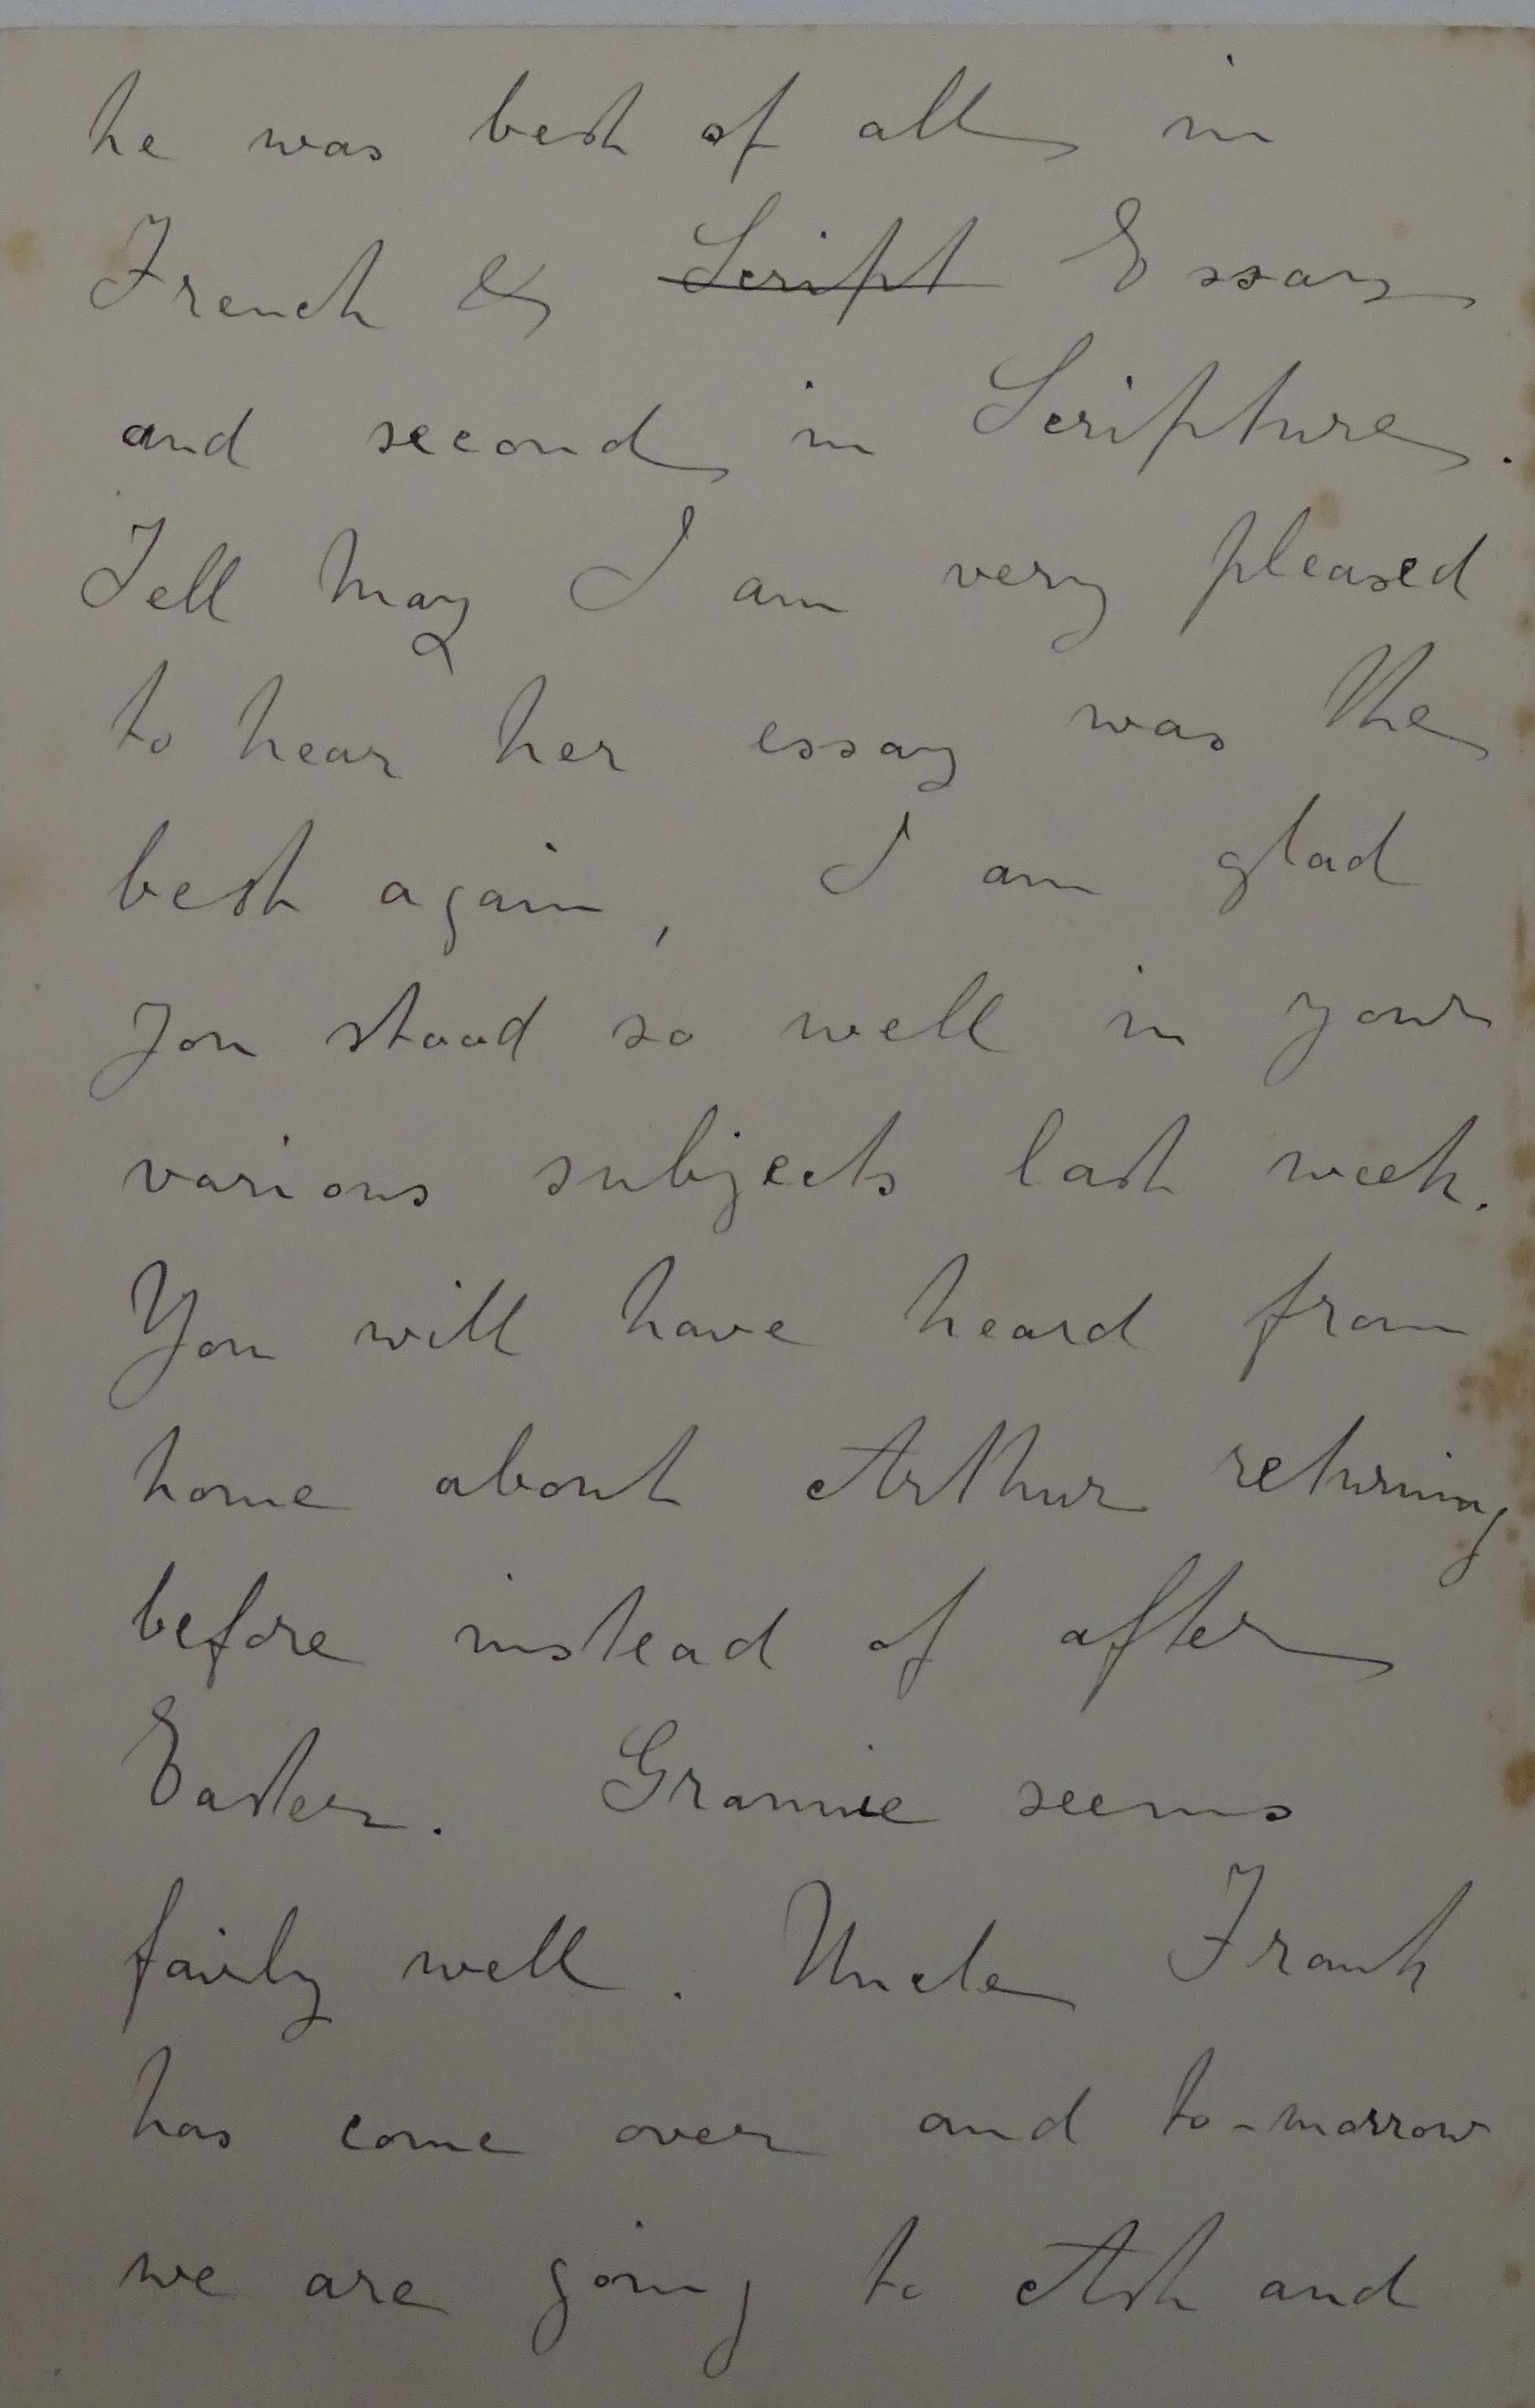 he was best of all in
French & ~~Script~~ Essay
and second in Scripture.
Tell May I am very pleased
to hear her essay was the
best again, I am glad
you stood so well in your
various subjects last week.
You will have heard from
home about Arthur returning
before instead of after
Easter. Grannie seems
fairly well. Uncle Frank
has come over and to-morrow
we are going to Ash and